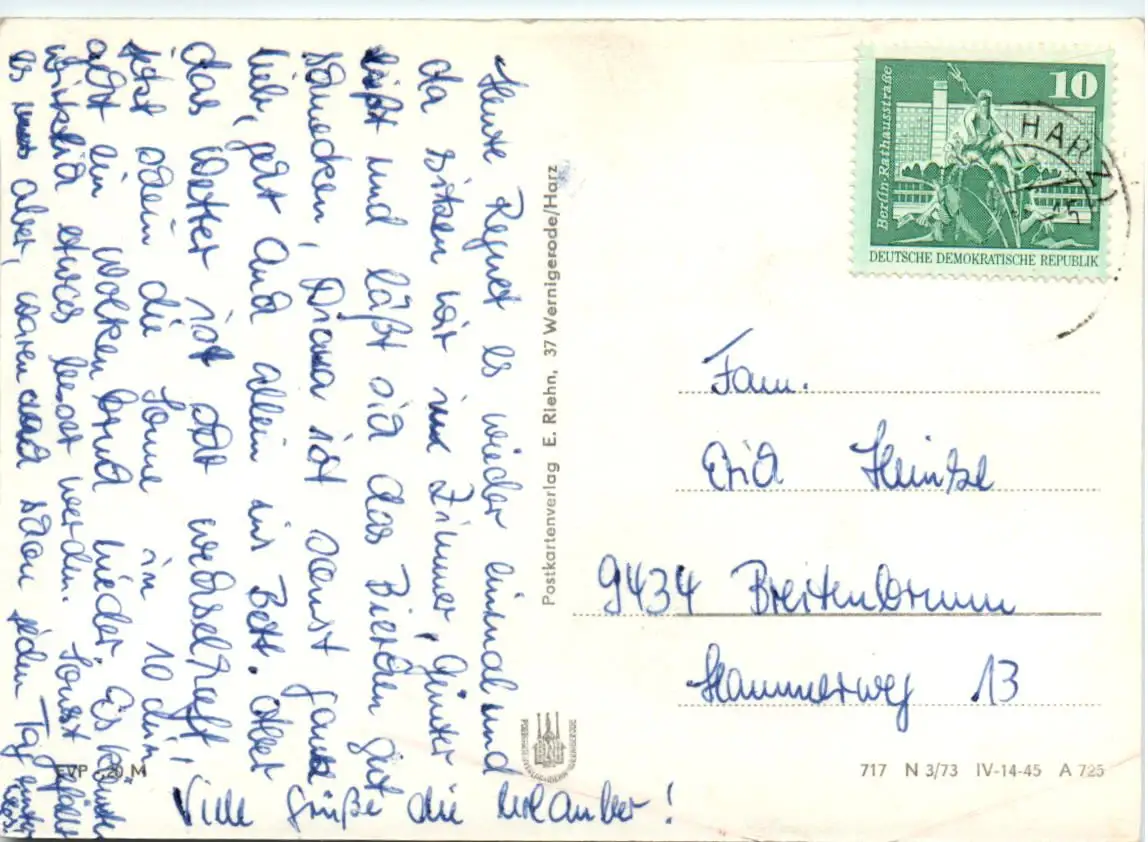 Heute Regnet es wieder einmal und
da sitzen wir im Zimmer, Günter
ließt und läßt sich das Bierchen gut
schmecken, Diana ist sonst ganz
lieb, geht auch allein ins Bett. Aber
das Wetter ist sehr wechselhaft,
jetzt schein die Sonne in 10 Min,
geht ein Wolken bruch nieder. Es könnte
wirklich etwas besser werden. Sonst gefällt
es uns aber, waren auch schon jeden Tag unter
wegs.
Viele Grüße die Urlauber!
Postkartenverlag E. Riehn, 37 Wernigerode/Harz
POSTKARTENVERLAG RIEHN WERNIGERODE
EVP -,20 M
10
Berlin-Rathausstraße
DEUTSCHE DEMOKRATISCHE REPUBLIK
HARZ)
15
Fam.
Erich Heinke
9434 Breitenbrunn
Hammerweg 13
717 N 3/73 IV-14-45 A 725